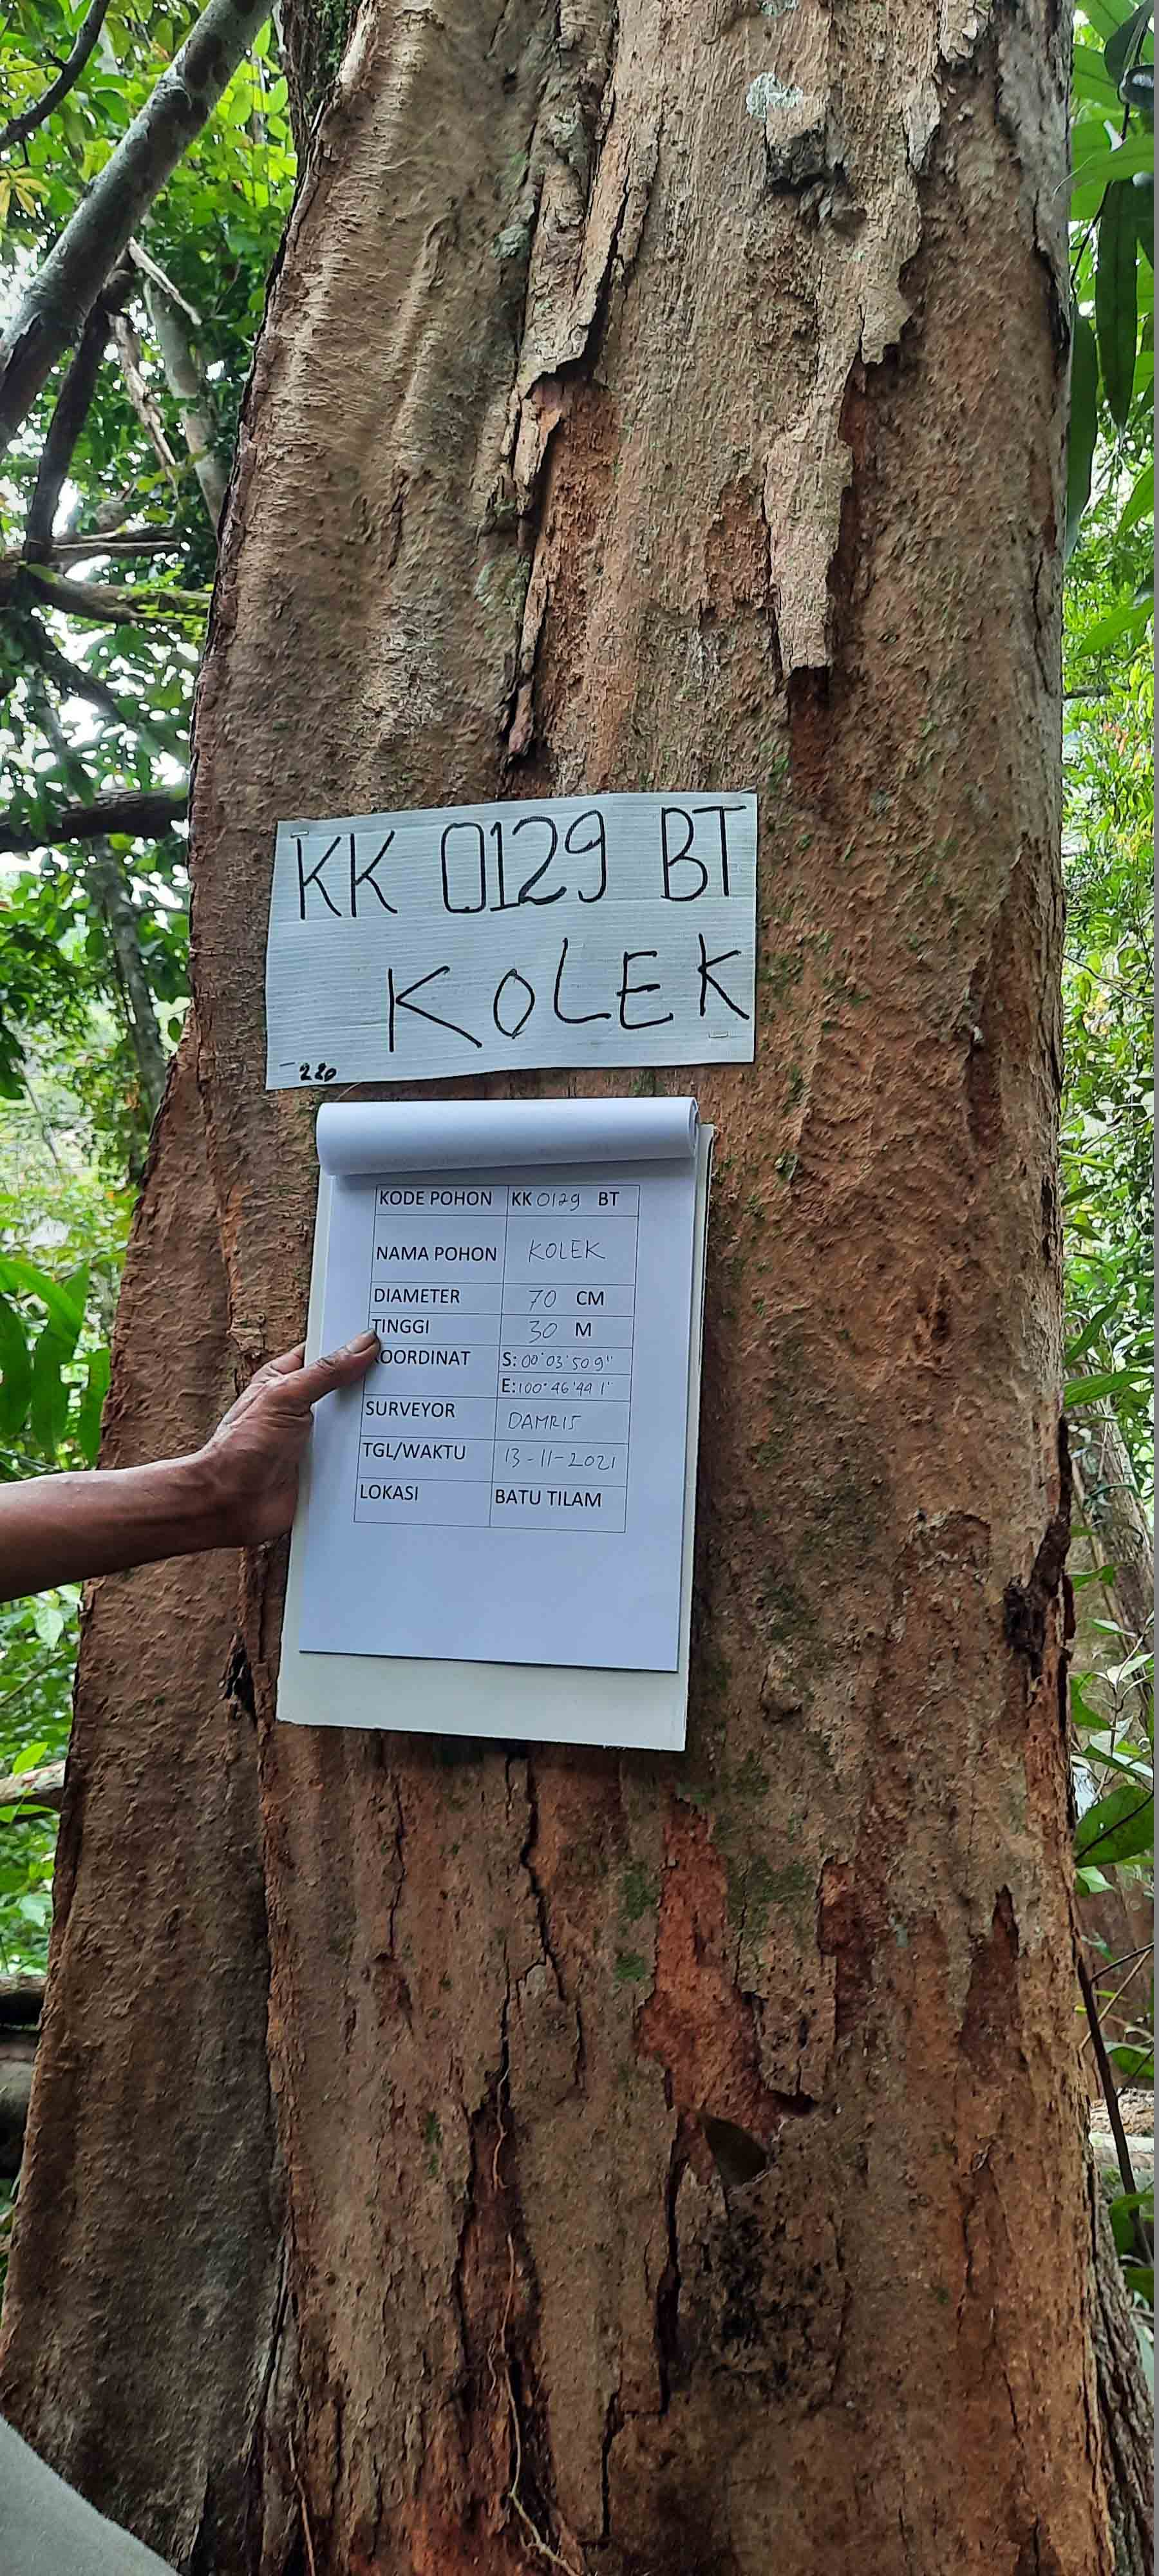 KK 0129 BT
KOLEK
220
KODE POHON KK 0129 BT
NAMA POHON KOLEK
DIAMETER 70 CM
TINGGI 30 M
KOORDINAT S: 00°03'50 9"
E: 100°46'44 1"
SURVEYOR DAMRIS
TGL/WAKTU 13-11-2021
LOKASI BATU TILAM